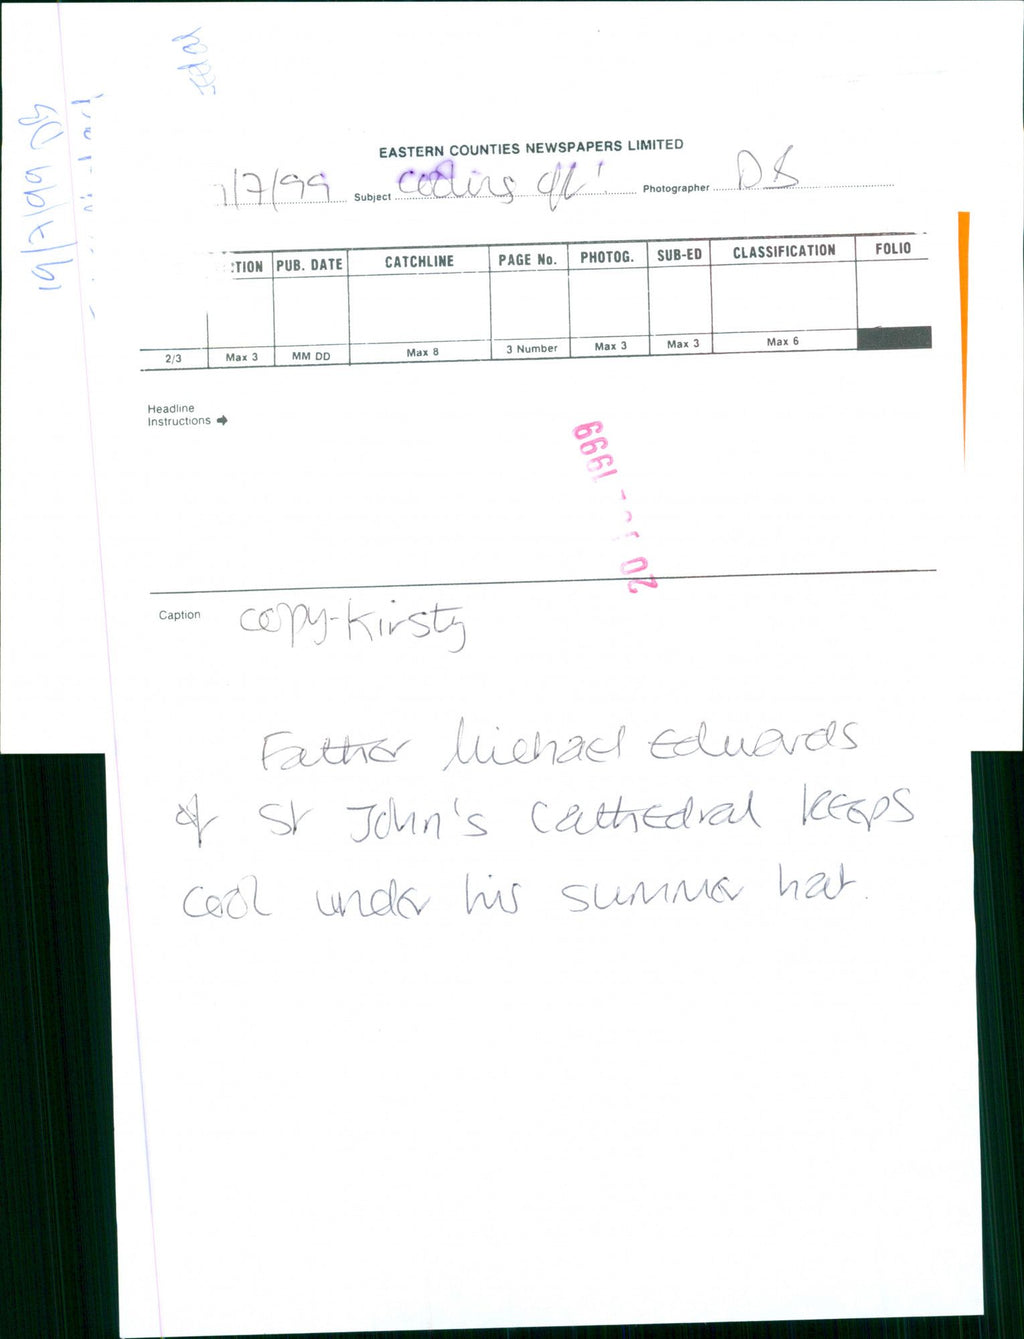 19/7/99 DS
EASTERN COUNTIES NEWSPAPERS LIMITED
/7/99 Subject cooling off! Photographer DS
TION PUB. DATE CATCHLINE PAGE No. PHOTOG. SUB-ED CLASSIFICATION FOLIO
2/3 Max 3 MM DD Max 8 3 Number Max 3 Max 3 Max 6
Headline
Instructions
20 1999
Caption copy-Kirsty
Father Michael Edwards
of St John's Cathedral keeps
cool under his summer hat.